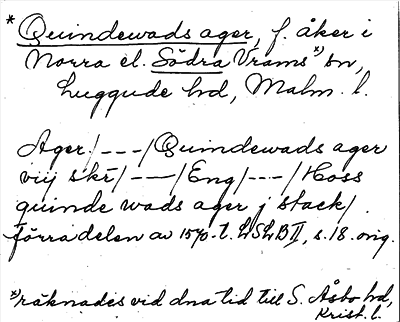 * Quindewads ager, f. åker i
Norra el. Södra Vrams*) sn,
Luggude hd, Malm. l.
Ager/---/Quindewads ager
viij skr/---/Eng/---/Hoss
quinde wads ager j stack/.
förra delen av 1570-t. LSLB II, s. 18. orig.
*) räknades vid dna tid till S. Åsbo hd,
Krist. l.